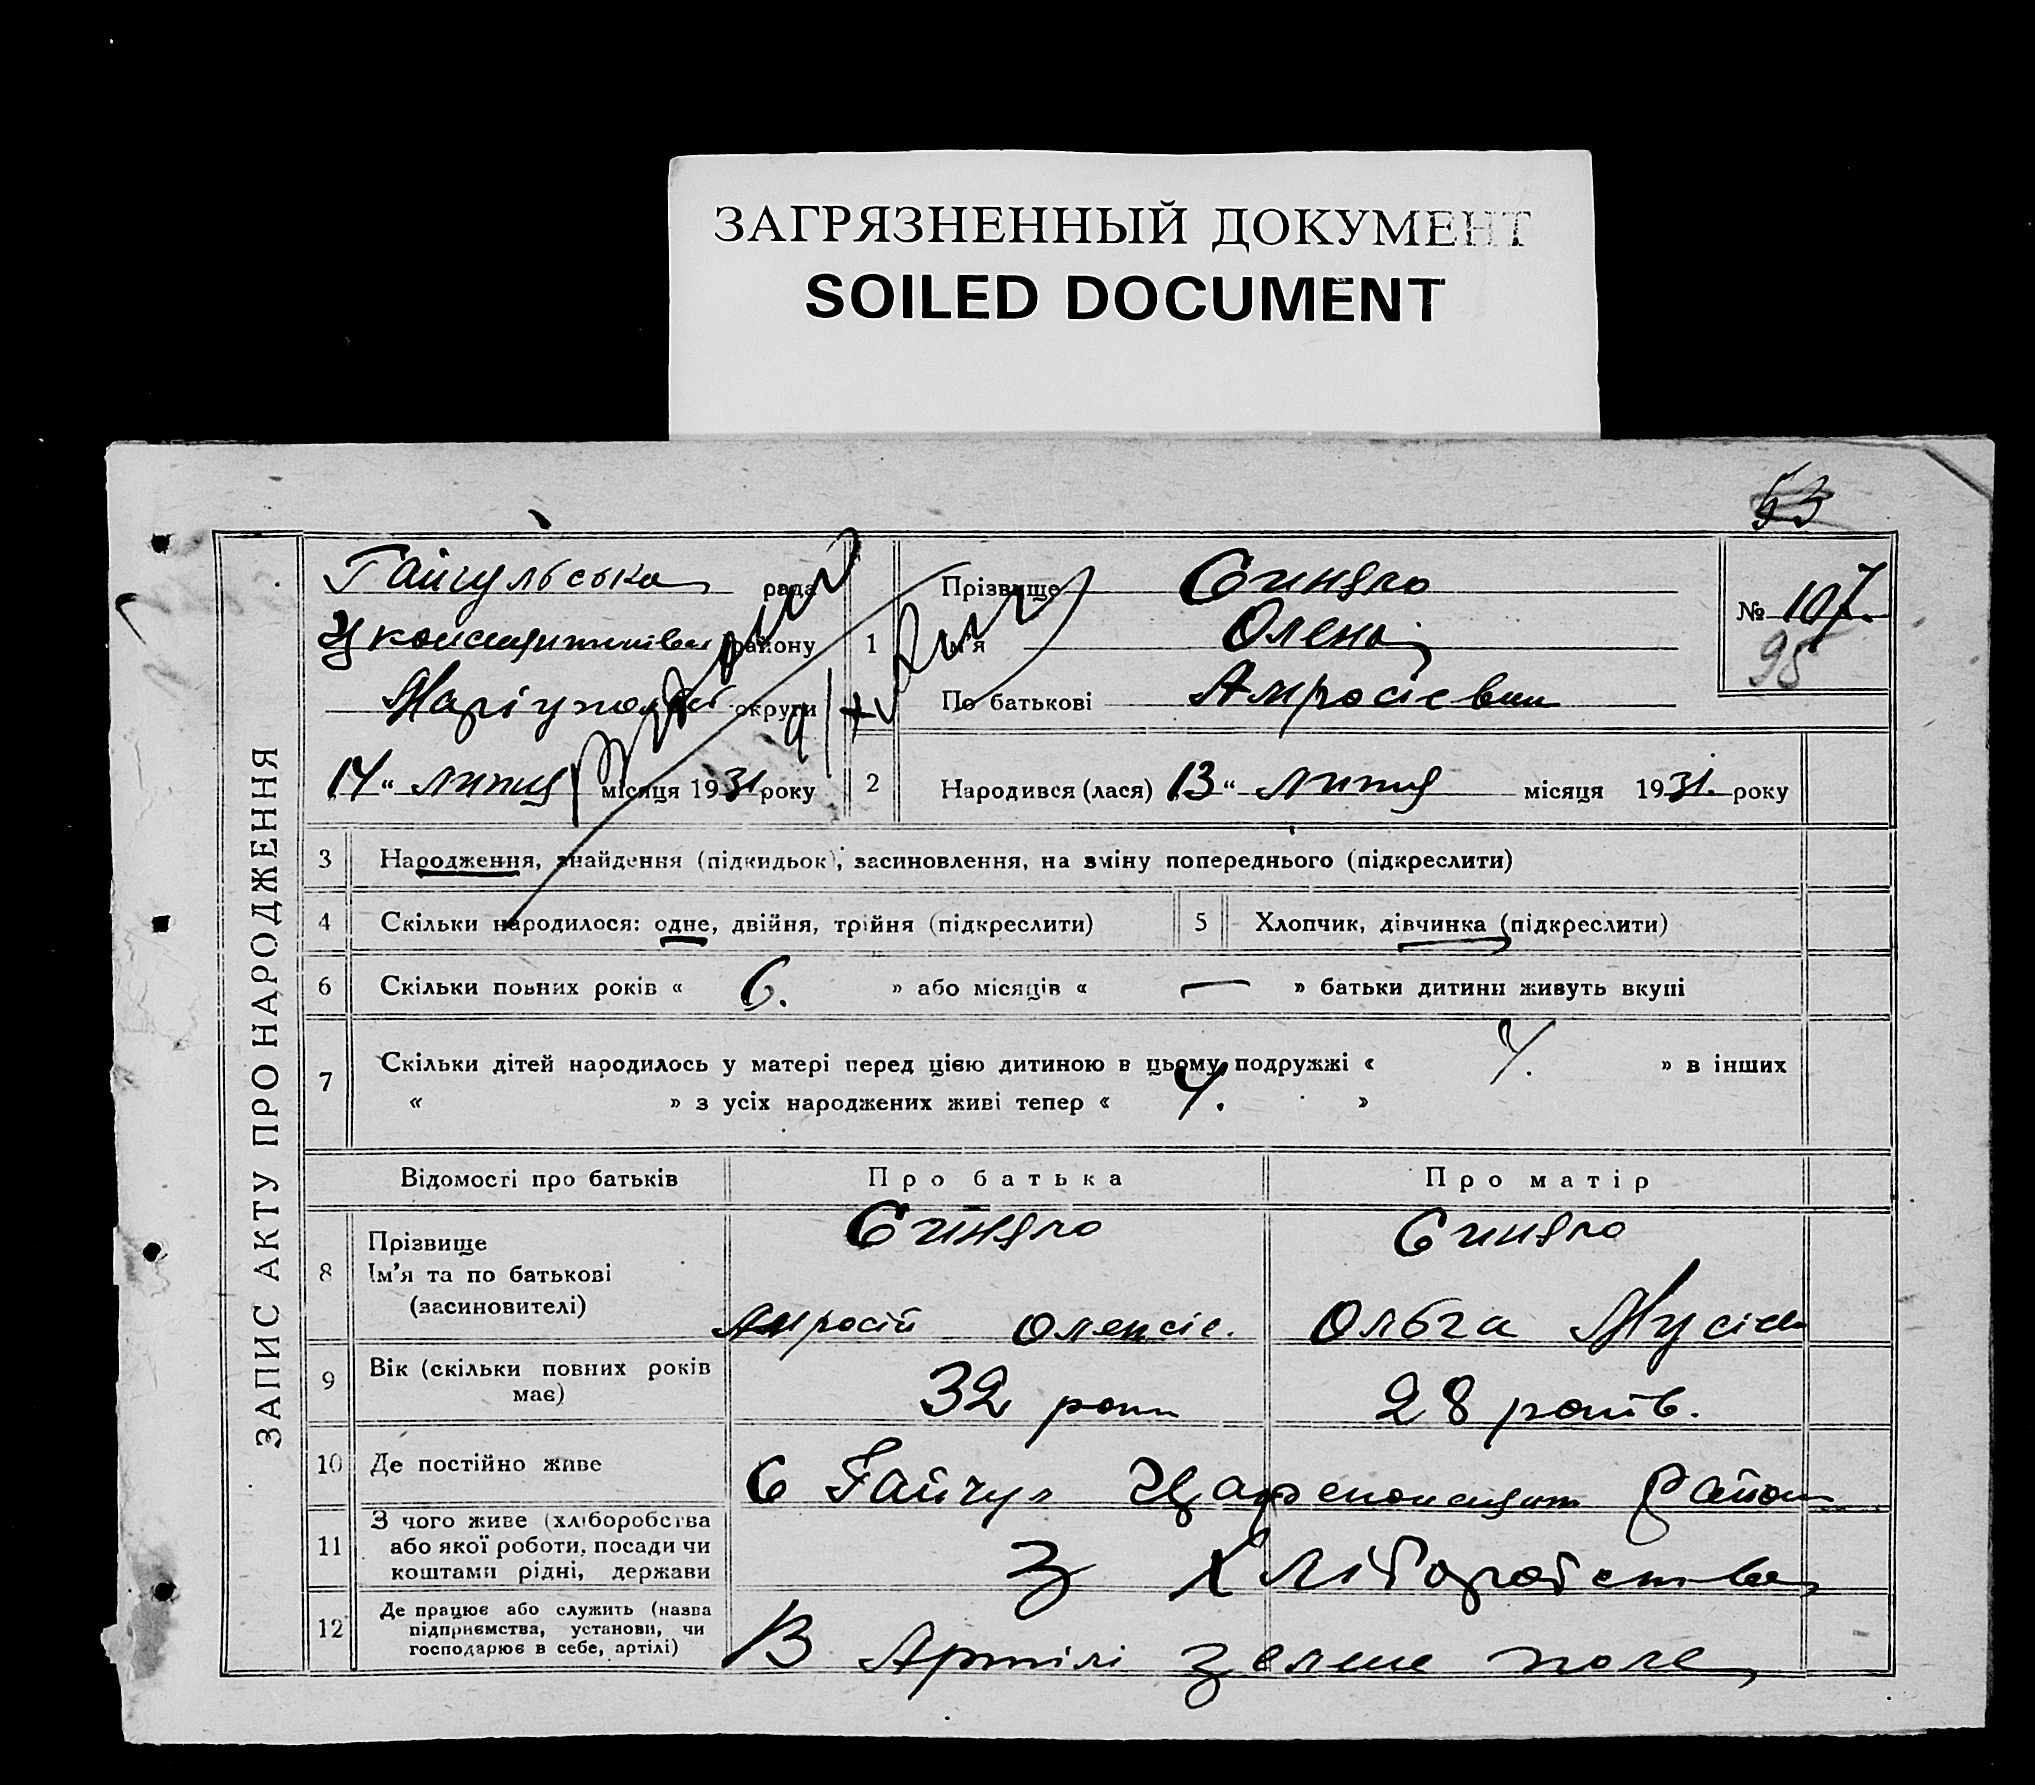 ЗАГРЯЗНЕННЫЙ ДОКУМЕНТ
SOILED DOCUMENT
53
ЗАПИС АКТУ ПРО НАРОДЖЕННЯ
Гайчульська рада
району
округи
14 " липця місяця 1931 року
1 Прізвище
Ім'я Олена
По батькові Амросієвна
№ 107.
95
2 Народився (лася) 13 " липця місяця 1931. року
3 Народження, знайдення (підкидьок), засиновлення, на зміну попереднього (підкреслити)
4 Скільки народилося: одне, двійня, трійня (підкреслити)
5 Хлопчик, дівчинка (підкреслити)
6 Скільки повних років « 6. » або місяців « — » батьки дитини живуть вкупі
7 Скільки дітей народилось у матері перед цією дитиною в цьому подружжі « 4. » в інших
« » з усіх народжених живі тепер « 4. »
Відомості про батьків Про батька Про матір
8 Прізвище
Ім'я та по батькові
(засиновителі)
Амросій Олексіє. Ольга Мусіев
9 Вік (скільки повних років
має)
32 роки 28 років.
10 Де постійно живе С Гайчул район
11 З чого живе (хліборобства
або якої роботи, посади чи
коштами рідні, держави
З Хліборобства
12 Де працює або служить (назва
підприємства, установи, чи
господарює в себе, артілі)
В Артілі зелене поле